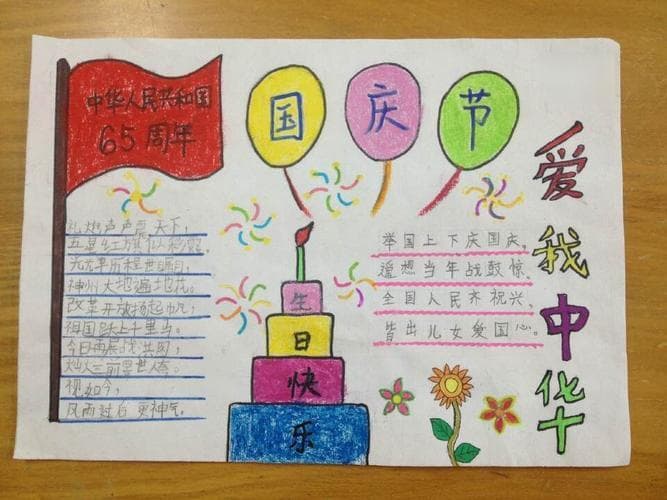 中华人民共和国
65周年
国庆节
爱我中华
礼炮声声震天下,
五星红旗似彩霞。
神州大地遍地花。
改革开放扬起帆,
祖国跃上千里马。
今日再展
灿 前景世人夸。
视如今,
风雨过后更神气。
生
日
快
乐
举国上下庆国庆,
遥想当年战鼓惊。
全国人民齐祝兴,
皆出儿女爱国心。